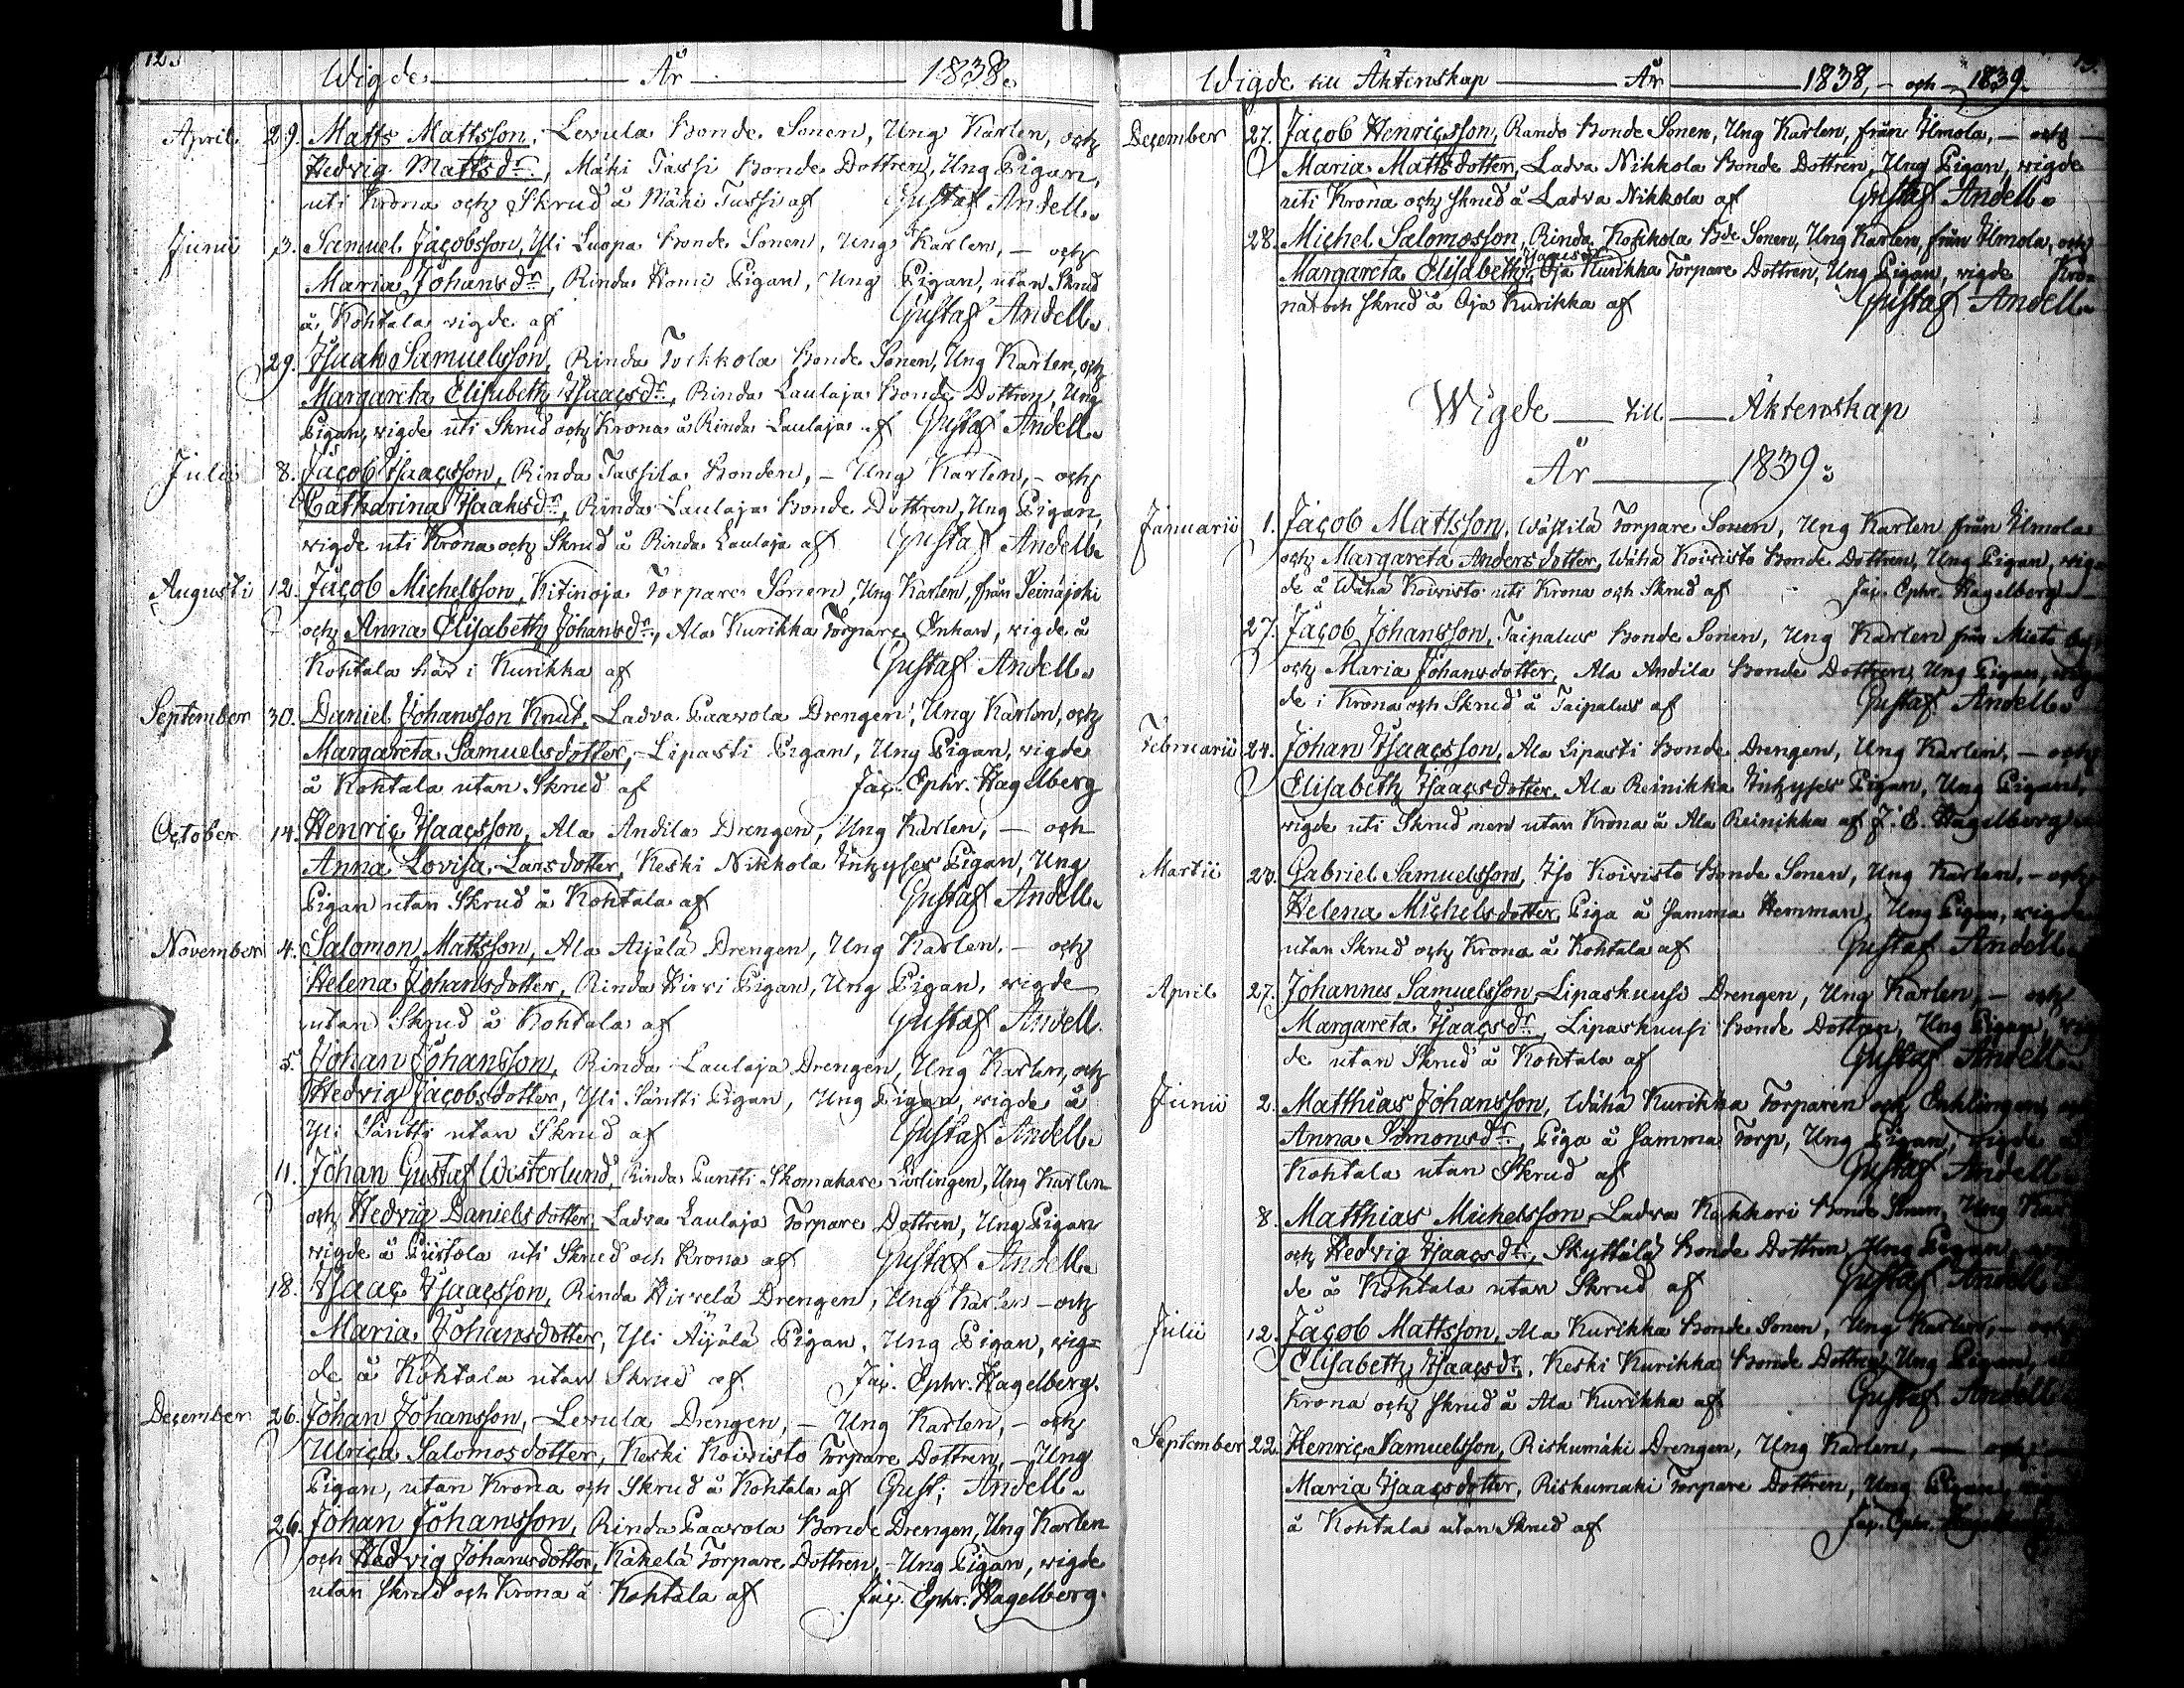 Wigde År 1838.
April 29. Matts Mattsson, Levula Bonde Sonen, Ung Karlen, och
Hedvig Mattsdr, Mäki Tassi Bonde Dottren, Ung Pigan,
uti Krona och Skrud å Mäki Tussi af Gustaf Andell.
Junii 3. Samuel Jacobsson, Yli Luopa Bonde Sonen, Ung Karlen, – och
Maria Johansdr, Rinda Pigan, Ung Pigan, utan Skrud
å Kohtala wigde af Gustaf Andell.
29. Isaak Samuelsson, Rinda Bonde Sonen, Ung Karlen, och
Margareta Elisabeth Isaacsdr, Rinda Laulaja Bonde Dottren, Ung
Pigan, wigde uti Skrud och Krona å Rinda Laulaja af Gustaf Andell.
Julii 8. Jacob Isaacsson, Rinda Tassila Bonden, – Ung Karlen, – och
Catharina Isaaksdr, Rinda Laulaja Bonde Dottren, Ung Pigan,
wigde uti Krona och Skrud å Rinda Laulaja af Gustaf Andell.
Augusti 12. Jacob Michelsson, Kitinoja Torpare Sonen, Ung Karlen, från Seinäjoki
och Anna Elisabeth Johansdr, Ala Kurikka Torpare Enkan, wigde å
Kohtala här i Kurikka af Gustaf Andell.
September 30. Daniel Johansson Knut, Ladva Paavola Drengen, Ung Karlen, och
Margareta Samuelsdotter, Lipasti Pigan, Ung Pigan, wigde
å Kohtala utan Skrud af Jac. Ephr. Hagelberg
October 14. Henric Isaacsson, Ala Andila Drengen, Ung Karlen, – och
Anna Lovisa Larsdotter, Keski Nikkola Inhyses Pigan, Ung
Pigan utan Skrud å Kohtala af Gustaf Andell.
November 4. Salomon Mattsson, Ala Äijälä Drengen, Ung Karlen, – och
Helena Johansdotter, Rinda Hirvi Pigan, Ung Pigan, wigde
utan Skrud å Kohtala af Gustaf Andell
5. Johan Johansson, Rinda Laulaja Drengen, Ung Karlen, och
Hedvig Jacobsdotter, Yli Säntti Pigan, Ung Pigan, wigde å
Yli Säntti utan Skrud af Gustaf Andell.
11. Johan Gustaf Westerlund, Rinda Puntti Skomakare Lärlingen, Ung Karlen
och Hedvig Danielsdotter, Ladva Laulaja Torpare Dottren, Ung Pigan
wigde å uti Skrud och Krona af Gustaf Andell.
18. Isaac Isaacsson, Rinda Hirvelä Drengen, Ung Karlen – och
Maria Johansdotter, Yli Äijälä Pigan, Ung Pigan, wig=
de å Kohtala utan Skrud af Jac. Ephr. Hagelberg.
December 26. Johan Johansson, Levula Drengen, – Ung Karlen, – och
Ulrica Salomosdotter, Keski Koivisto Torpare Dottren, – Ung
Pigan, utan Krona och Skrud å Kohtala af Gust: Andell.
26. Johan Johansson, Rinda Paavola Bonde Drengen, Ung Karlen
och Hedvig Johansdotter, Käkelä Torpare Dottren, – Ung Pigan, wigde
utan Skrud och Krona å Kohtala af Jac. Ephr. Hagelberg.
Wigde till Äktenskap År 1838, – och – 1839.
December 27. Jacob Henricsson, Rando Bonde Sonen, Ung Karlen, från Ilmola, – och
Maria Mattsdotter, Ladva Nikkola Bonde Dottren, Ung Pigan, wigde
uti Krona och Skrud å Ladva Nikkola af Gustaf Andell.
28. Michel Salomosson, Rinda Bde Sonen, Ung Karlen, från Ilmola, och
Margareta Elisabeth, Oja Kurikka Torpare Dottren, Ung Pigan, wigde Kro=
na och Skrud å Oja Kurikka af Gustaf Andell.
Wigde till Äktenskap
År 1839.
Januarii 1. Jacob Mattsson, Wästilä Torpare Sonen, Ung Karlen från Ilmola
och Margareta Andersdotter, Wähä Koivisto Bonde Dottren, Ung Pigan, wig
de å Wähä Koivisto uti Krona och Skrud af Jac. Ephr. Hagelberg
27. Jacob Johansson, Taipalus Bonde Sonen, Ung Karlen från Mieto by,
och Maria Johansdotter, Ala Andila Bonde Dottren, Ung Pigan, wig
de i Krona och Skrud å Taipalus af Gustaf Andell.
Februarii 24. Johan Isaacsson, Ala Lipasti Bonde Drengen, Ung Karlen, – och
Elisabeth Isaacsdotter, Ala Reinikka Inhyses Pigan, Ung Pigan,
wigde uti Skrud men utan Krona å Ala Reinikka af J. E. Hagelberg
Martii 23. Gabriel Samuelsson, Iso Koivisto Bonde Sonen, Ung Karlen, – och
Helena Michelsdotter, Piga å samma Hemman, Ung Pigan, wigde
utan Skrud och Krona å Kohtala af Gustaf Andell.
April 27. Johannes Samuelsson, Lipaskuusi Drengen, Ung Karlen, – och
Margareta Isaacsdr, Lipaskuusi Bonde Dottren, Ung Pigan,
de utan Skrud å Kohtala af Gustaf Andell
Junii 2. Matthias Johansson, Wähä Kurikka Torparen och Enklingen,
Anna Simonsdr, Piga å samma Torp, Ung Pigan, wigde
Kohtala utan Skrud af Gustaf Andell
8. Matthias Michelsson, Ladva Kakkori Bonde Sonen, Ung
och Hedvig Isaacsdr, Skyttälä Bonde Dottren, Ung Pigan,
de å Kohtala utan Skrud af Gustaf Andell
Julii 12. Jacob Mattsson, Ala Kurikka Bonde Sonen, Ung Karlen, – och
Elisabeth Isaacsdr, Keski Kurikka Bonde Dottren, Ung Pigan,
Krona och Skrud å Ala Kurikka af Gustaf Andell
September 22. Henric Samuelsson, Riskumäki Drengen, Ung Karlen, – och
Maria Isaacsdotter, Riskumäki Torpare Dottren, Ung Pigan,
å Kohtala utan Skrud af Jac. Ephr.